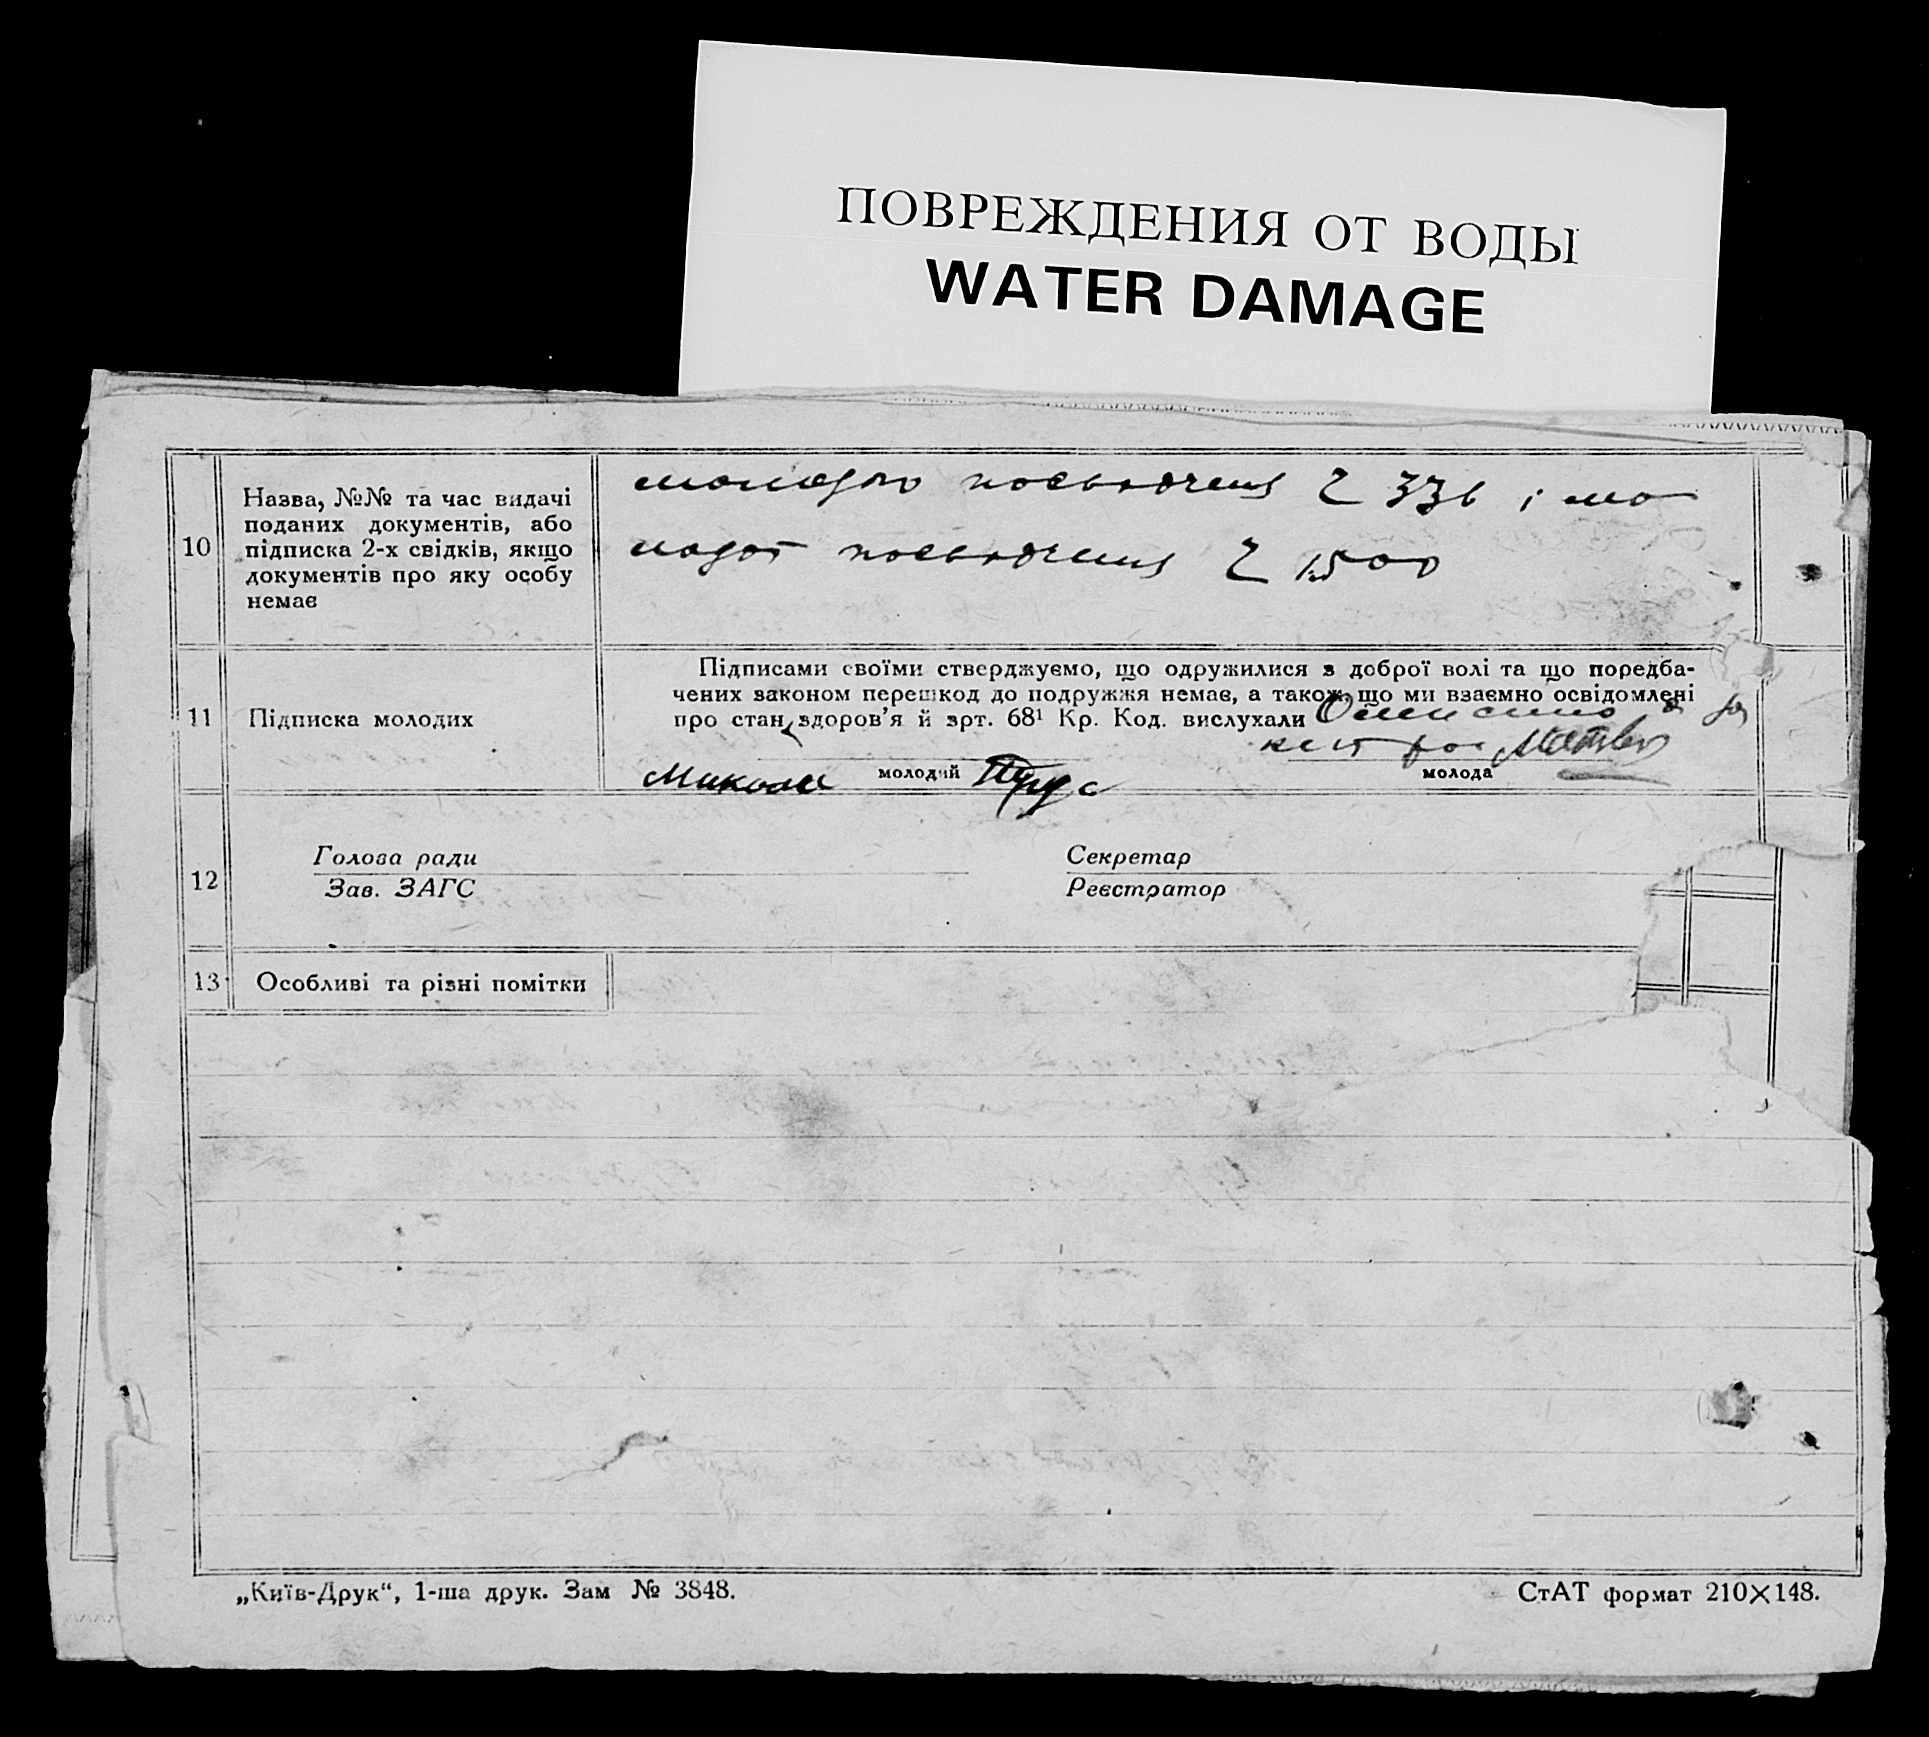 ПОВРЕЖДЕНИЯ ОТ ВОДЫ
WATER DAMAGE
10
Назва, №№ та час видачі
поданих документів, або
підписка 2-х свідків, якщо
документів про яку особу
немає
молодого посвідчення Ч 336 і мо-
лодої посвідчення Ч 1500
11
Підписка молодих
Підписами своїми стверджуємо, що одружилися з доброї волі та що поредба-
чених законом перешкод до подружжя немає, а також, що ми взаємно освідомлені
про стан здоров'я й зрт. 68¹ Кр. Код. вислухали
молодий
молода
Микола
12
Голова ради
Зав. ЗАГС
Секретар
Реєстратор
13
Особливі та різні помітки
„Київ-Друк“, 1-ша друк. Зам № 3848.
СтАТ формат 210×148.